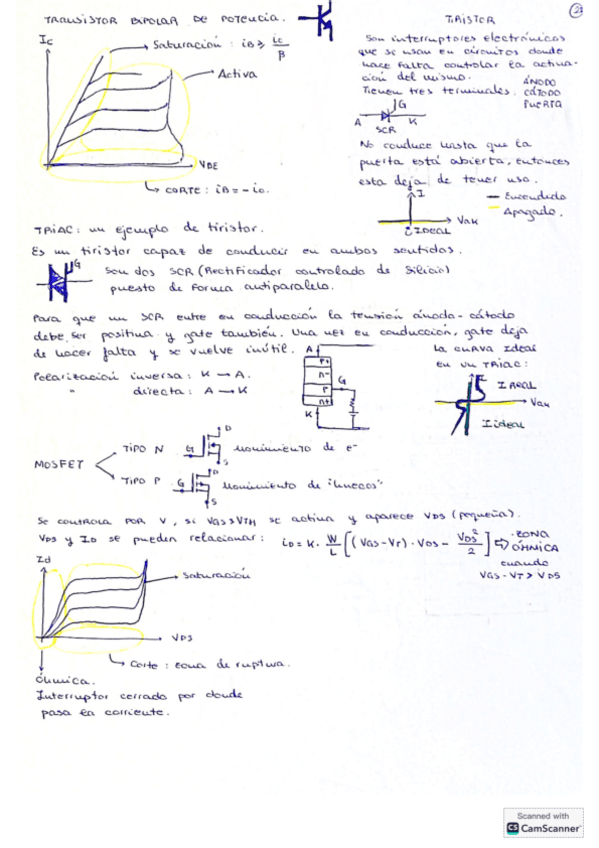 TRANSISTOR BIPOLAR DE POTENCIA.
Ic
Saturación : iB ≥ ic/β
Activa
VDE
CORTE : iB = - io.
TIRISTOR
Son interruptores electrónicos
que se usan en circuitos donde
hace falta controlar la activa-
ción del mismo.
Tienen tres terminales.
ÁNODO
CÁTODO
PUERTA
A
G
K
SCR
No conduce hasta que la
puerta está abierta, entonces
esta deja de tener uso.
I
Encendido
Apagado.
VAK
IDEAL
TRIAC : un ejemplo de tiristor.
Es un tiristor capaz de conducir en ambos sentidos.
G
Son dos SCR (Rectificador controlado de Silicio)
puesto de forma antiparalelo.
Para que un SCR entre en conducción la tensión ánodo-cátodo
debe ser positiva y gate también. Una vez en conducción, gate deja
de hacer falta y se vuelve inútil.
Polarización inversa : K → A.
" directa : A → K
A
P+
n-
P
n+
G
K
La curva ideal
en un TRIAC :
I REAL
VAK
I ideal
MOSFET
TIPO N
G
D
S
Movimiento de e-
TIPO P
G
D
S
Movimiento de "huecos"
Se controla POR V, si VGS>VTH se activa y aparece VDS (pequeña).
VDS y ID se pueden relacionar : iD = K · W/L [(VGS-VT) · VDS - VDS²/2]
ZONA
ÓHMICA
cuando
VGS - VT > VDS
Id
Saturación
VDS
Corte : zona de ruptura.
Óhmica.
Interruptor cerrado por donde
pasa la corriente.
Scanned with
CS CamScanner